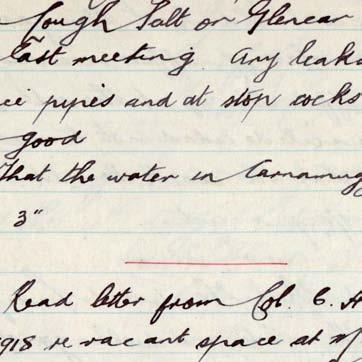 Lough Salt or Glencar
last meeting. Any leaka
pipes and at stop cocks
good
That the water in Carnamug
3"
Read letter from Col. G. H
1918 re vacant space at